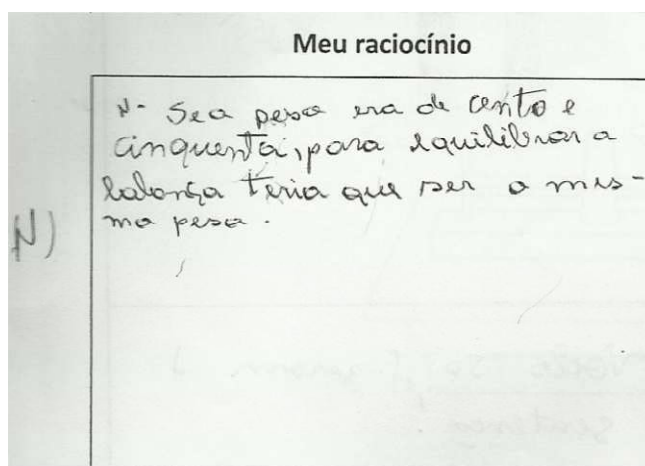 Meu raciocínio
N- Se o peso era de cento e
cinquenta, para equilibrar a
balança teria que ser o mes-
mo peso.
N)